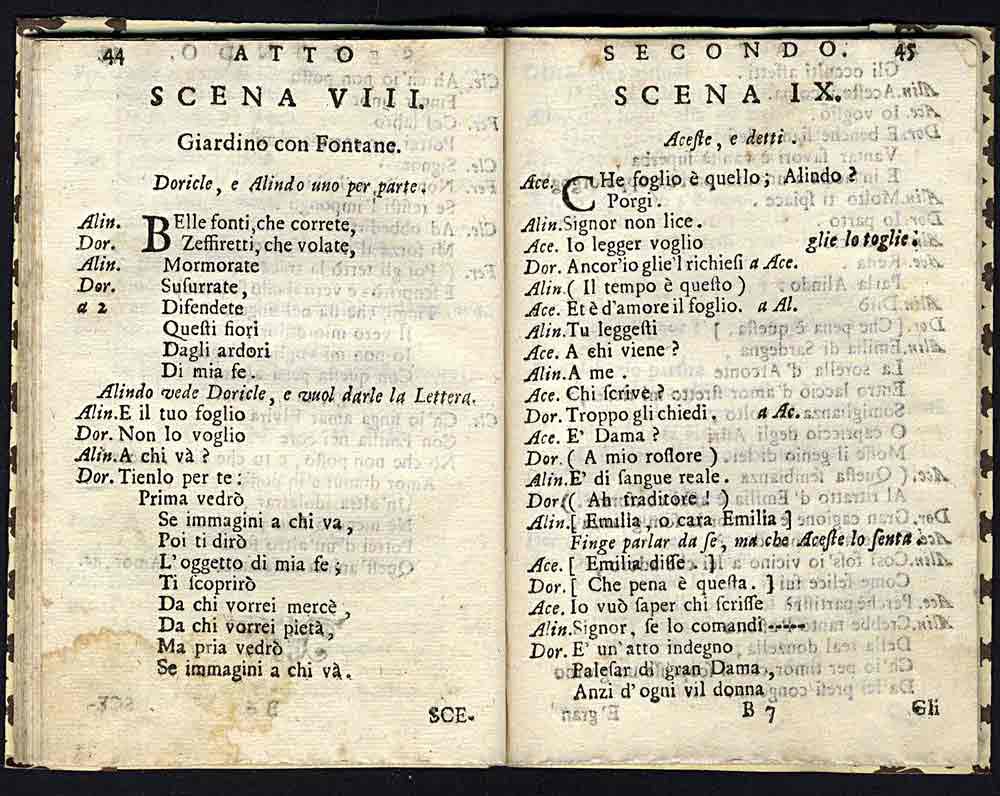 44 ATTO
SCENA VIII.
Giardino con Fontane.
Doricle, e Alindo uno per parte.
Alin. BElle fonti, che correte,
Dor. Zeffiretti, che volate,
Alin. Mormorate
Dor. Suſurrate,
a 2 Difendete
Queſti fiori
Dagli ardori
Di mia fe.
Alindo vede Doricle, e vuol darle la Lettera.
Alin. E il tuo foglio
Dor. Non lo voglio
Alin. A chi và?
Dor. Tienlo per te:
Prima vedrò
Se immagini a chi va,
Poi ti dirò
L'oggetto di mia fe;
Ti ſcoprirò
Da chi vorrei mercè,
Da chi vorrei pietà,
Ma pria vedrò
Se immagini a chi và.
SCE-
SECONDO. 45
SCENA IX.
Aceſte, e detti.
Ace. CHe foglio è quello; Alindo?
Porgi.
Alin. Signor non lice.
Ace. Io legger voglio glie lo toglie.
Dor. Ancor'io glie'l richieſi a Ace.
Alin. ( Il tempo è queſto )
Ace. Et è d'amore il foglio. a Al.
Alin. Tu leggeſti
Ace. A chi viene?
Alin. A me.
Ace. Chi ſcrive?
Dor. Troppo gli chiedi. a Ac.
Ace. E' Dama?
Dor. ( A mio roſſore )
Alin. E' di ſangue reale.
Dor. ( Ah traditore! )
Alin. [ Emilia, o cara Emilia ]
Finge parlar da ſe, ma che Aceſte lo ſenta.
Ace. [ Emilia diſſe. ]
Dor. [ Che pena è queſta. ]
Ace. Io vuò ſaper chi ſcriſſe
Alin. Signor, ſe lo comandi-----
Dor. E' un'atto indegno
Paleſar di gran Dama,
Anzi d'ogni vil donna
B 7 Gli